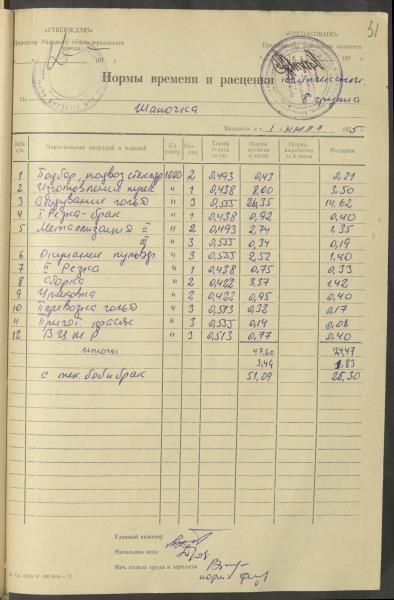 31
«УТВЕРЖДАЮ»
Директор Рижского стеклозеркального
завода
197 г.
«СОГЛАСОВАНО»
197 г.
Нормы времени и расценки
По
8 группа
Шапочка
Вводится с 1 1975
№№ п/п. Наименование операций и изделий Ед. измер. Раз-ряд Тариф. ставка за час Норма времени в часах Норма выработки за 8 часов Расценок
1 Подбор, подвоз 1000 2 0,493 0,43 0,21
2 " 1 0,438 8,00 3,50
3 Выдувание " 3 0,555 26,35 14,62
4 I Резка-брак " 1 0,438 0,92 0,40
5 Металлизация II " 2 0,493 2,74 1,35
III " 3 0,555 0,34 0,19
6 " 3 0,555 2,52 1,40
7 II Резка " 1 0,438 0,75 0,33
8 Сборка " 2 0,422 3,37 1,42
9 Упаковка " 2 0,422 0,95 0,40
10 Перевозка " 3 0,513 0,32 0,17
11 Пригот. красок " 3 0,555 0,14 0,08
12 В Ц М Р " 3 0,513 0,77 0,40
итого 47,60 24,47
3,49 1,83
с тех. бой и брак 51,09 26,30
Главный инженер
Начальник цеха
Нач. отдела труда и зарплаты